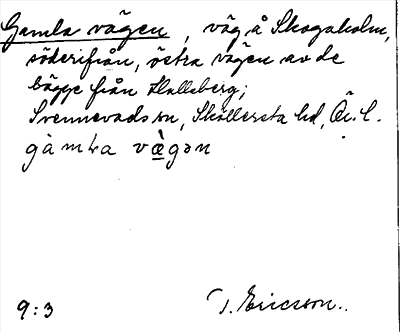 Gamla vägen, väg å Skogaholm,
söderifrån, östra vägen av de
bägge från Halleberg;
Svennevads sn, Sköllersta hd, Ör. l.
gàmɬa væ̀gən
9:3 T. Ericsson.